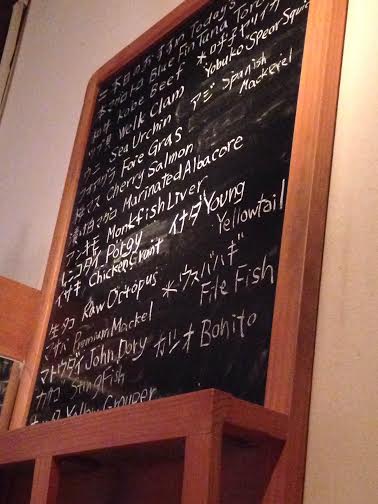 本日のおすすめ Today's
Blue Fin Tuna Toro
Kobe Beef
Yobuko Spear Squid
Welk Clam
アジ Spanish Mackerel
ウニ Sea Urchin
フォアグラ Fore Gras
Cherry Salmon
Marinated Albacore
アンキモ Monkfish Liver
レンコダイ Porgy イナダ Young Yellowtail
イサキ Chicken Grunt
生タコ Raw Octopus
ウスバハギ File Fish
マサバ Premium Mackel
マトウダイ John Dory カツオ Bonito
Stingfish
Yellow Grouper